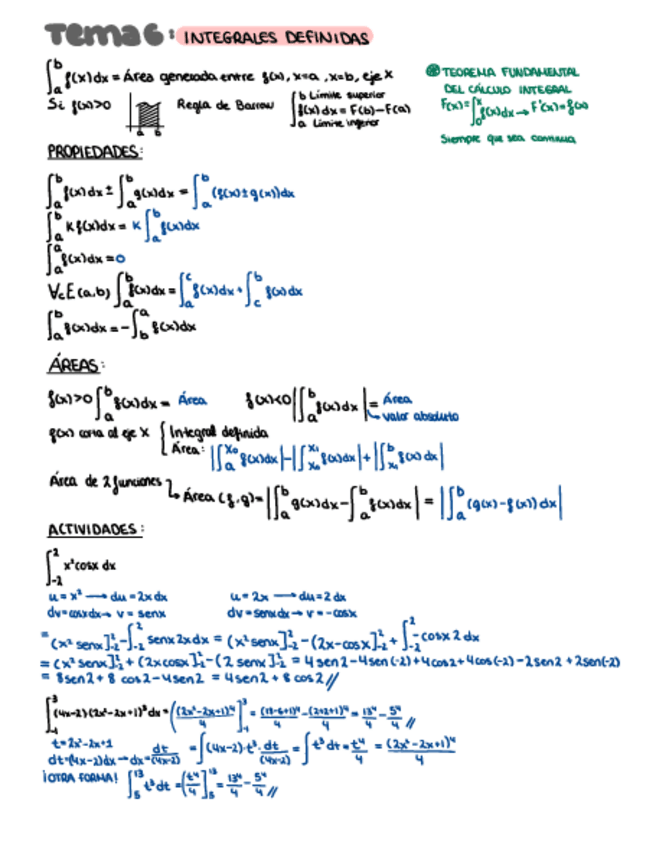 Tema 6: INTEGRALES DEFINIDAS
∫_a^b f(x)dx = Área generada entre f(x), x=a, x=b, eje X
Si f(x)>0
a b
Regla de Barrow ∫_a^b f(x)dx = F(b)-F(a)
b Límite superior
a Límite inferior
TEOREMA FUNDAMENTAL
DEL CÁLCULO INTEGRAL
F(x)=∫_0^x f(x)dx → F'(x)=f(x)
Siempre que sea continua
PROPIEDADES:
∫_a^b f(x)dx ± ∫_a^b g(x)dx = ∫_a^b (f(x)±g(x))dx
∫_a^b K f(x)dx = K ∫_a^b f(x)dx
∫_a^a f(x)dx = 0
∀c E (a,b) ∫_a^b f(x)dx = ∫_a^c f(x)dx + ∫_c^b f(x)dx
∫_a^b f(x)dx = -∫_b^a f(x)dx
ÁREAS:
f(x)>0 ∫_a^b f(x)dx = Área f(x)<0 |∫_a^b f(x)dx| = Área
valor absoluto
f(x) corta al eje X { Integral definida
Área: |∫_a^x₀ f(x)dx|-|∫_x₀^x₁ f(x)dx|+|∫_x₁^b f(x)dx|
Área de 2 funciones
Área (f,g)=|∫_a^b g(x)dx-∫_a^b f(x)dx| = |∫_a^b (g(x)-f(x))dx|
ACTIVIDADES:
∫_-2^2 x²cosx dx
u = x² → du = 2x dx u = 2x → du = 2 dx
dv = cosxdx → v = senx dv = senxdx → v = -cosx
= (x² senx]_-2^2 - ∫_-2^2 senx2xdx = (x² senx]_-2^2 - (2x-cosx]_-2^2 + ∫_-2^2 -cosx 2 dx
= (x² senx]_-2^2 + (2x cosx]_-2^2 - (2 senx]_-2^2 = 4 sen2 - 4sen(-2) + 4cos2 + 4cos(-2) - 2sen2 + 2sen(-2)
= 8sen2 + 8 cos2 - 4sen2 = 4sen2 + 8 cos2 //
∫_-1^3 (4x-2)·(2x²-2x+1)³dx = ((2x²-2x+1)⁴/4]_-1^3 = (18-6+1)⁴/4 - (2+2+1)⁴/4 = 13⁴/4 - 5⁴/4 //
t = 2x²-2x+1
dt = (4x-2)dx → dx = dt/(4x-2) = ∫(4x-2)·t³·dt/(4x-2) = ∫t³dt = t⁴/4 = (2x²-2x+1)⁴/4
¡OTRA FORMA! ∫_5^13 t³dt = (t⁴/4]_5^13 = 13⁴/4 - 5⁴/4 //